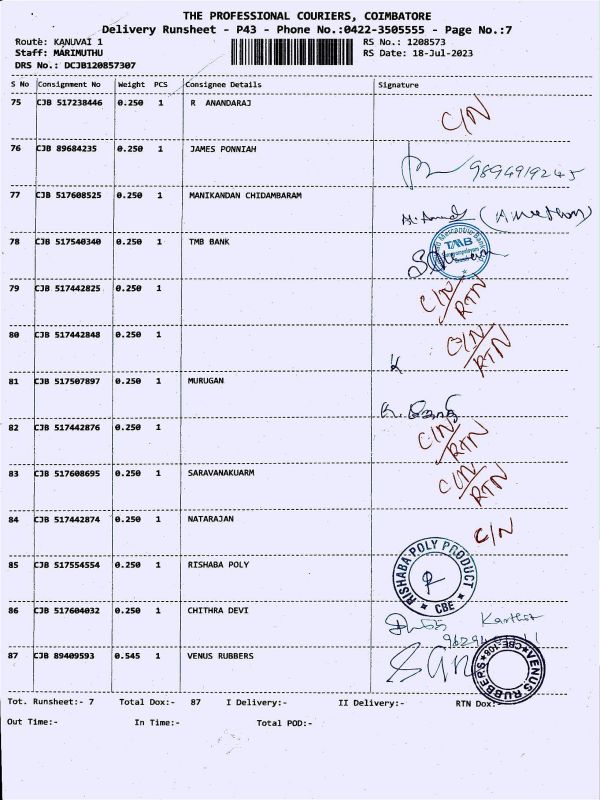 THE PROFESSIONAL COURIERS, COIMBATORE
Delivery Runsheet - P43 - Phone No.:0422-3505555 - Page No.:7
Route: KANUVAI 1 RS No.: 1208573
Staff: MARIMUTHU RS Date: 18-Jul-2023
DRS No.: DCJB120857307
S No Consignment No Weight PCS Consignee Details Signature
75 CJB 517238446 0.250 1 R ANANDARAJ C/N
76 CJB 89684235 0.250 1 JAMES PONNIAH 9894919245
77 CJB 517608525 0.250 1 MANIKANDAN CHIDAMBARAM
78 CJB 517540340 0.250 1 TMB BANK TMB
79 CJB 517442825 0.250 1 C/N RTN
80 CJB 517442848 0.250 1 C/N RTN
81 CJB 517507897 0.250 1 MURUGAN
82 CJB 517442876 0.250 1 C/N RTN
83 CJB 517608695 0.250 1 SARAVANAKUARM C/N RTN
84 CJB 517442874 0.250 1 NATARAJAN C/N
85 CJB 517554554 0.250 1 RISHABA POLY RISHABA POLY PRODUCT CBE
86 CJB 517604032 0.250 1 CHITHRA DEVI
87 CJB 89409593 0.545 1 VENUS RUBBERS VENUS RUBBERS CBE-108
Tot. Runsheet:- 7 Total Dox:- 87 I Delivery:- II Delivery:- RTN Dox:-
Out Time:- In Time:- Total POD:-